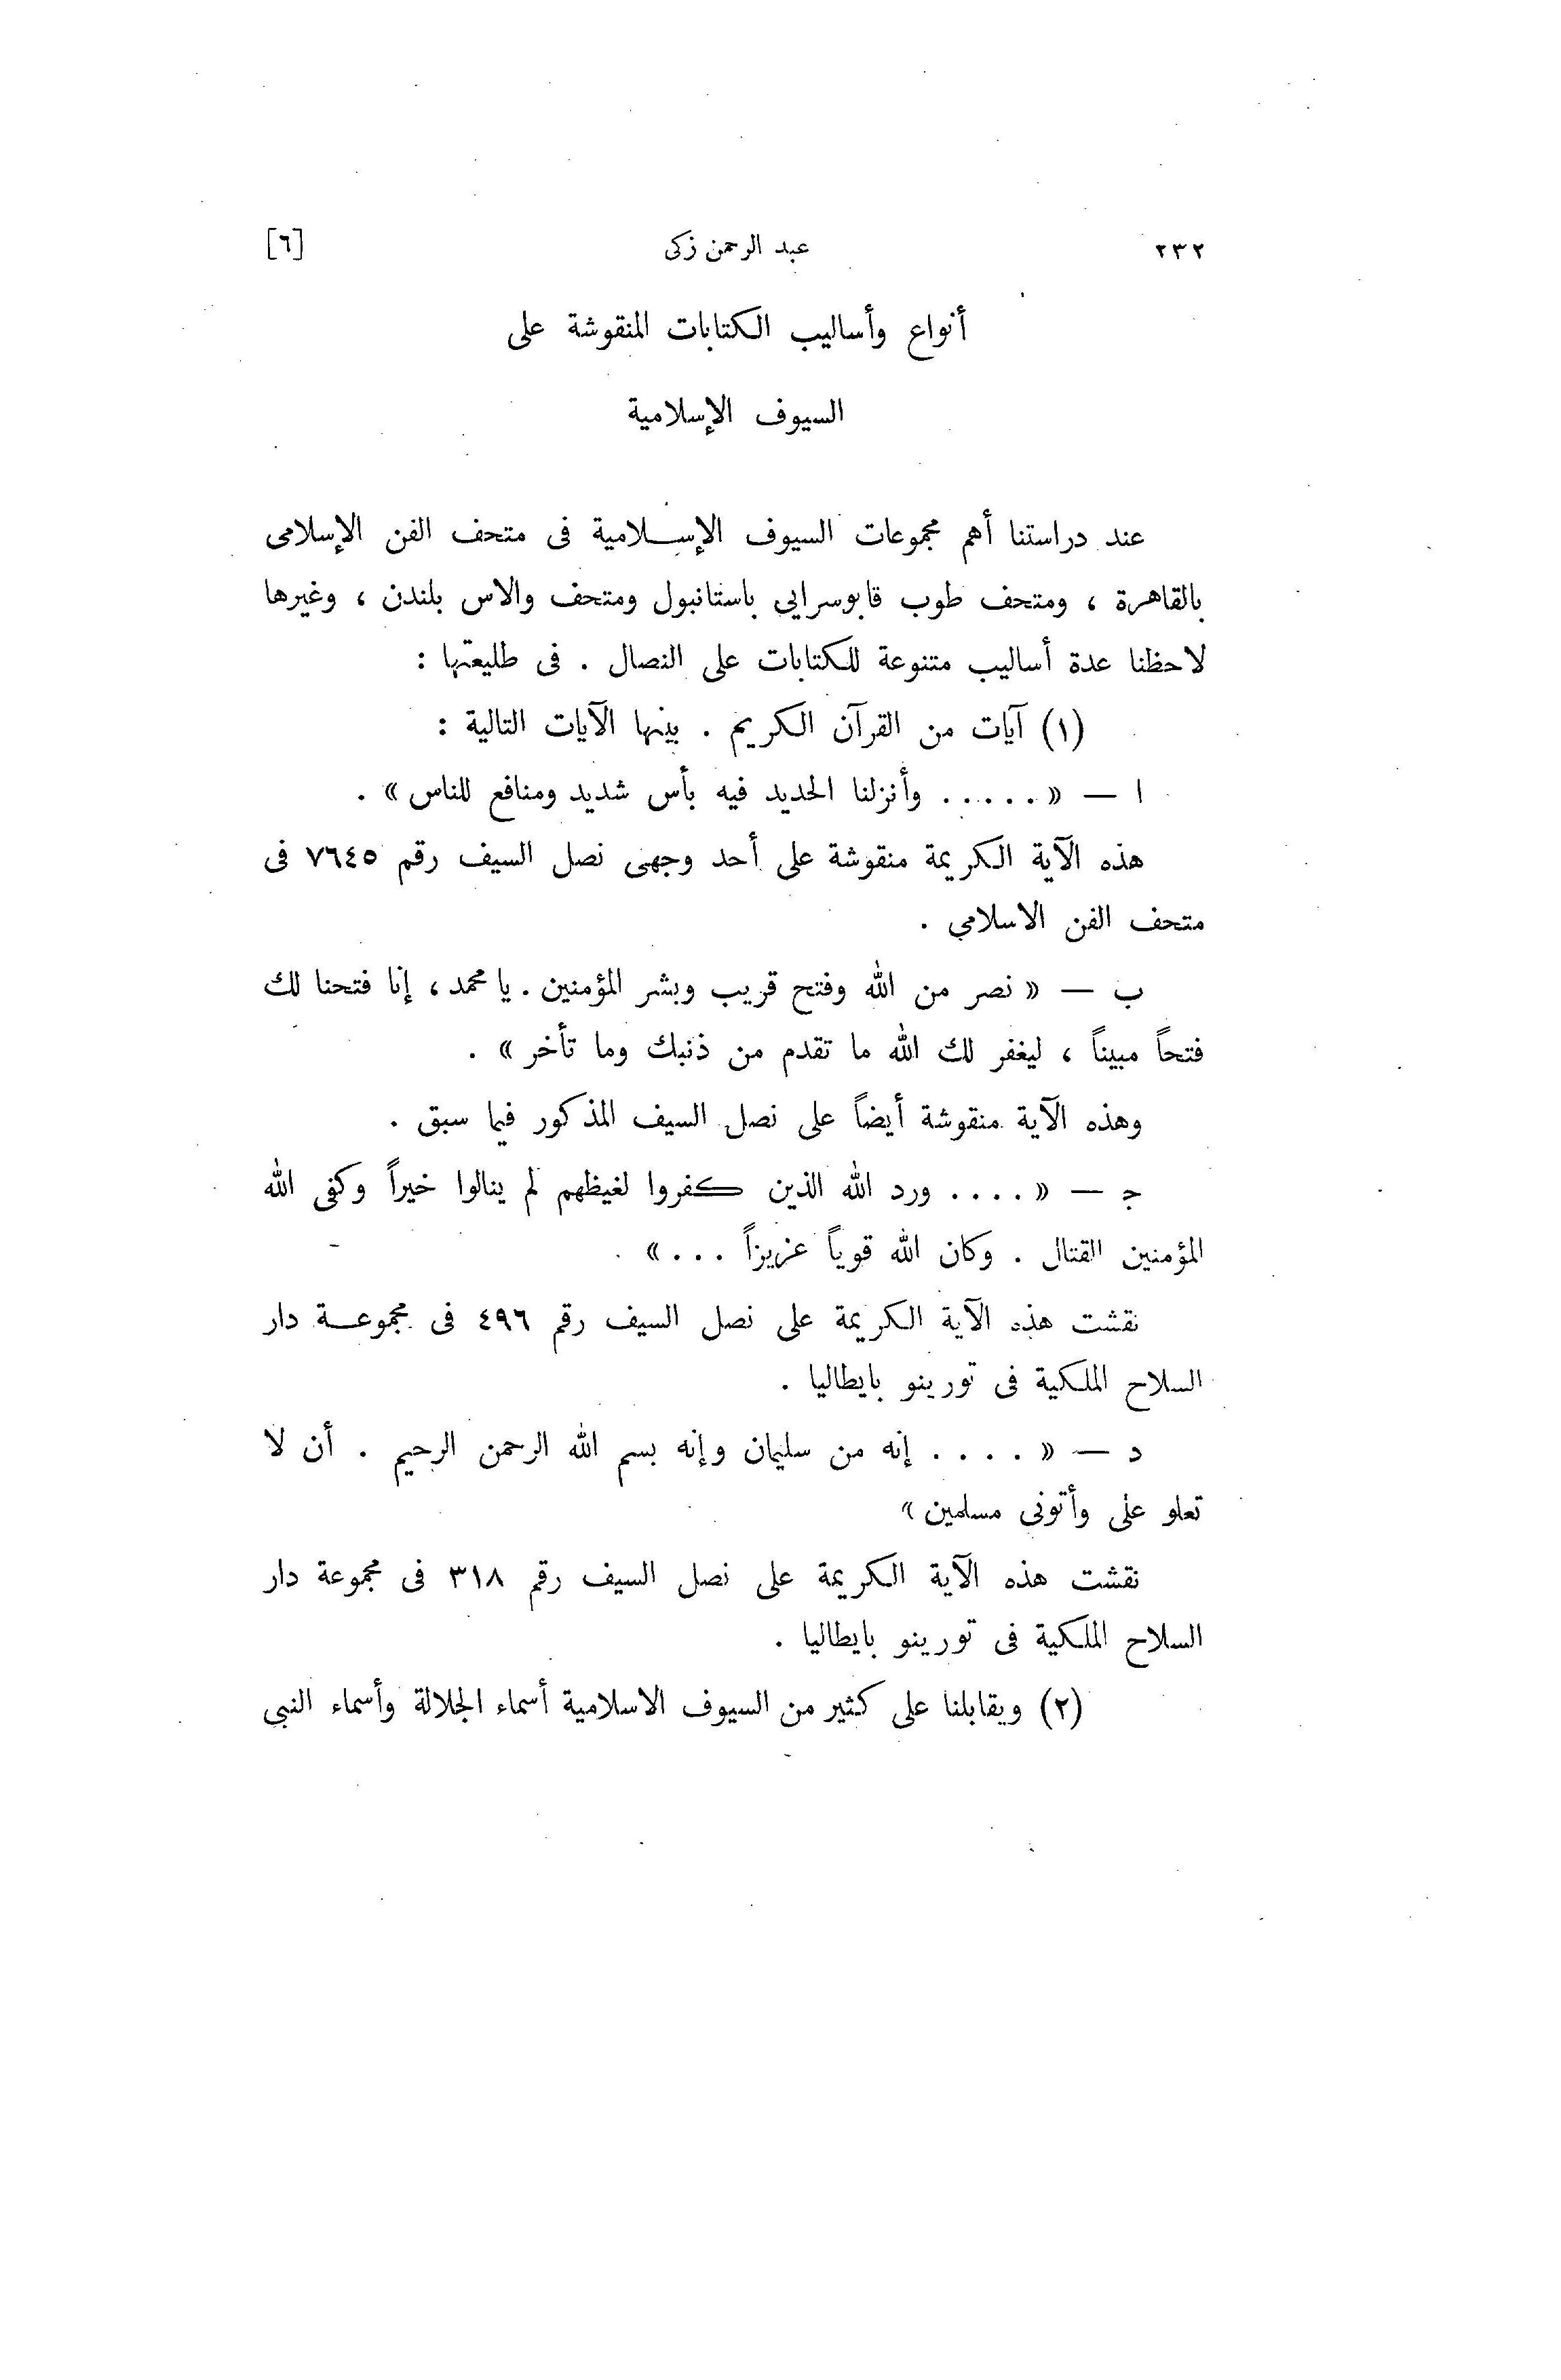 ٢٣٢ عبد الرحمن زكى [٦]
أنواع وأساليب الكتابات المنقوشة على
السيوف الإسلامية
عند دراستنا أهم مجموعات السيوف الإسلامية فى متحف الفن الإسلامى
بالقاهرة ، ومتحف طوب قابوسرايى باستانبول ومتحف والاس بلندن ، وغيرها
لاحظنا عدة أساليب متنوعة للكتابات على النصال . فى طليعتها :
(١) آيات من القرآن الكريم . بينها الآيات التالية :
ا — « ..... وأنزلنا الحديد فيه بأس شديد ومنافع للناس » .
هذه الآية الكريمة منقوشة على أحد وجهى نصل السيف رقم ٧٦٤٥ فى
متحف الفن الاسلامي .
ب — « نصر من الله وفتح قريب وبشر المؤمنين . يا محمد ، إنا فتحنا لك
فتحاً مبيناً ، ليغفر لك الله ما تقدم من ذنبك وما تأخر » .
وهذه الآية منقوشة أيضاً على نصل السيف المذكور فيما سبق .
ج — « .... ورد الله الذين كفروا لغيظهم لم ينالوا خيراً وكفى الله
المؤمنين القتال . وكان الله قوياً عزيزاً ... »
نقشت هذه الآية الكريمة على نصل السيف رقم ٤٩٦ فى مجموعة دار
السلاح الملكية فى تورينو بايطاليا .
د — « .... إنه من سليمان وإنه بسم الله الرحمن الرحيم . أن لا
تعلو على وأتونى مسلمين »
نقشت هذه الآية الكريمة على نصل السيف رقم ٣١٨ فى مجموعة دار
السلاح الملكية فى تورينو بايطاليا .
(٢) ويقابلنا على كثير من السيوف الاسلامية أسماء الجلالة وأسماء النبى